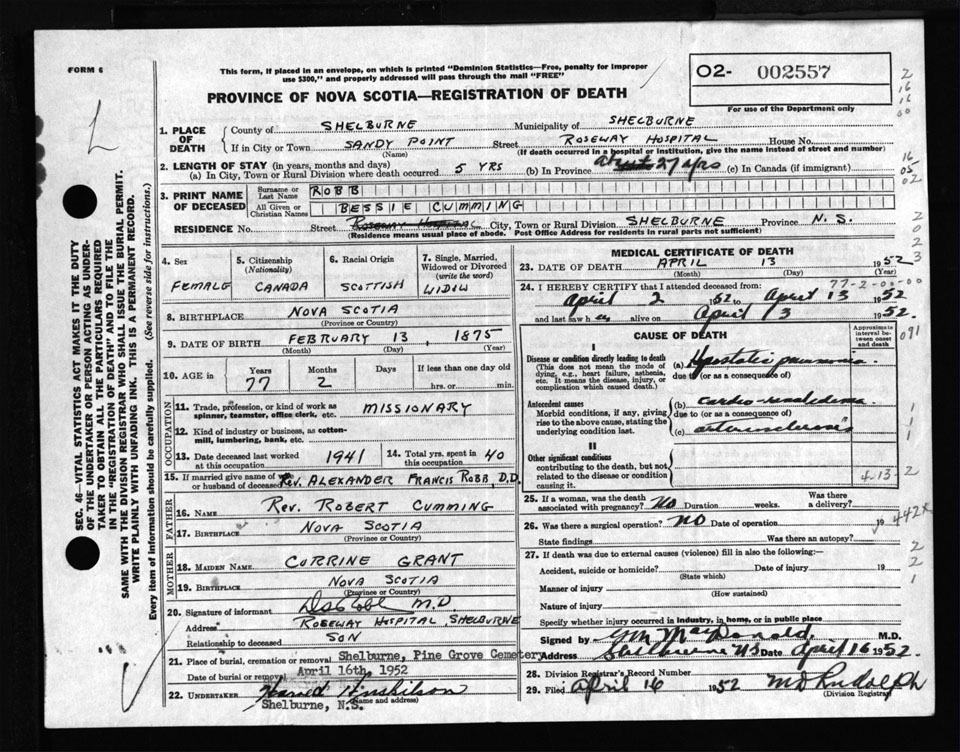 FORM 6
This form, if placed in an envelope, on which is printed "Dominion Statistics—Free, penalty for improper
use $300," and properly addressed will pass through the mail "FREE"
02- 002557
PROVINCE OF NOVA SCOTIA—REGISTRATION OF DEATH
For use of the Department only
1. PLACE OF DEATH
County of SHELBURNE Municipality of SHELBURNE
If in City or Town SANDY POINT Street ROSEWAY HOSPITAL House No.
(Name) (If death occurred in a hospital or institution, give the name instead of street and number)
2. LENGTH OF STAY (in years, months and days)
(a) In City, Town or Rural Division where death occurred 5 YRS (b) In Province about 27 yrs (c) In Canada (if immigrant)
3. PRINT NAME OF DECEASED
Surname or Last Name ROBB
All Given or Christian Names BESSIE CUMMING
RESIDENCE No. Street ROSEWAY HOSPITAL City, Town or Rural Division SHELBURNE Province N. S.
(Residence means usual place of abode. Post Office Address for residents in rural parts not sufficient)
4. Sex
FEMALE
5. Citizenship (Nationality)
CANADA
6. Racial Origin
SCOTTISH
7. Single, Married, Widowed or Divorced (write the word)
WIDOW
8. BIRTHPLACE NOVA SCOTIA
(Province or Country)
9. DATE OF BIRTH FEBRUARY 13, 1875
(Month) (Day) (Year)
10. AGE in Years Months Days If less than one day old
77 2 hrs. or min.
OCCUPATION
11. Trade, profession, or kind of work as spinner, teamster, office clerk, etc. MISSIONARY
12. Kind of industry or business, as cotton-mill, lumbering, bank, etc.
13. Date deceased last worked at this occupation 1941
14. Total yrs. spent in this occupation 40
15. If married give name of wife or husband of deceased Rev. ALEXANDER FRANCIS ROBB, D.D.
FATHER
16. NAME Rev. ROBERT CUMMING
17. BIRTHPLACE NOVA SCOTIA
(Province or Country)
MOTHER
18. MAIDEN NAME CORRINE GRANT
19. BIRTHPLACE NOVA SCOTIA
(Province or Country)
20. Signature of informant M.D.
Address ROSEWAY HOSPITAL, SHELBURNE
Relationship to deceased SON
21. Place of burial, cremation or removal Shelburne, Pine Grove Cemetery
Date of burial or removal April 16th, 1952
22. UNDERTAKER
Shelburne, N.S. (Name and address)
MEDICAL CERTIFICATE OF DEATH
23. DATE OF DEATH APRIL 13 1952
(Month) (Day) (Year)
77-2-00-00
24. I HEREBY CERTIFY that I attended deceased from:
April 2 1952 to April 13 1952
and last saw her alive on April 13 1952
CAUSE OF DEATH
Approximate interval between onset and death
I
Disease or condition directly leading to death
(This does not mean the mode of dying, e.g., heart failure, asthenia, etc. It means the disease, injury, or complication which caused death.)
(a) Hypostatic pneumonia
due to (or as a consequence of)
Antecedent causes
Morbid conditions, if any, giving rise to the above cause, stating the underlying condition last.
(b)
due to (or as a consequence of)
(c) arteriosclerosis
II
Other significant conditions
contributing to the death, but not related to the disease or condition causing it.
4-13-2
25. If a woman, was the death associated with pregnancy? NO Duration weeks. Was there a delivery?
26. Was there a surgical operation? NO Date of operation 19
State findings Was there an autopsy?
442X
27. If death was due to external causes (violence) fill in also the following:—
Accident, suicide or homicide? Date of injury 19
(State which)
Manner of injury
(How sustained)
Nature of injury
Specify whether injury occurred in industry, in home, or in public place
Signed by G.M. MacDonald M.D.
Address Shelburne NS Date April 16 1952.
28. Division Registrar's Record Number
29. Filed April 16 1952 M D Rudolph
(Division Registrar)
SEC. 46—VITAL STATISTICS ACT MAKES IT THE DUTY
OF THE UNDERTAKER OR PERSON ACTING AS UNDER-
TAKER TO OBTAIN ALL THE PARTICULARS REQUIRED
IN THE "REGISTRATION OF DEATH" AND TO FILE THE
SAME WITH THE DIVISION REGISTRAR WHO SHALL ISSUE THE BURIAL PERMIT.
WRITE PLAINLY WITH UNFADING INK. THIS IS A PERMANENT RECORD.
Every item of information should be carefully supplied. (See reverse side for instructions.)